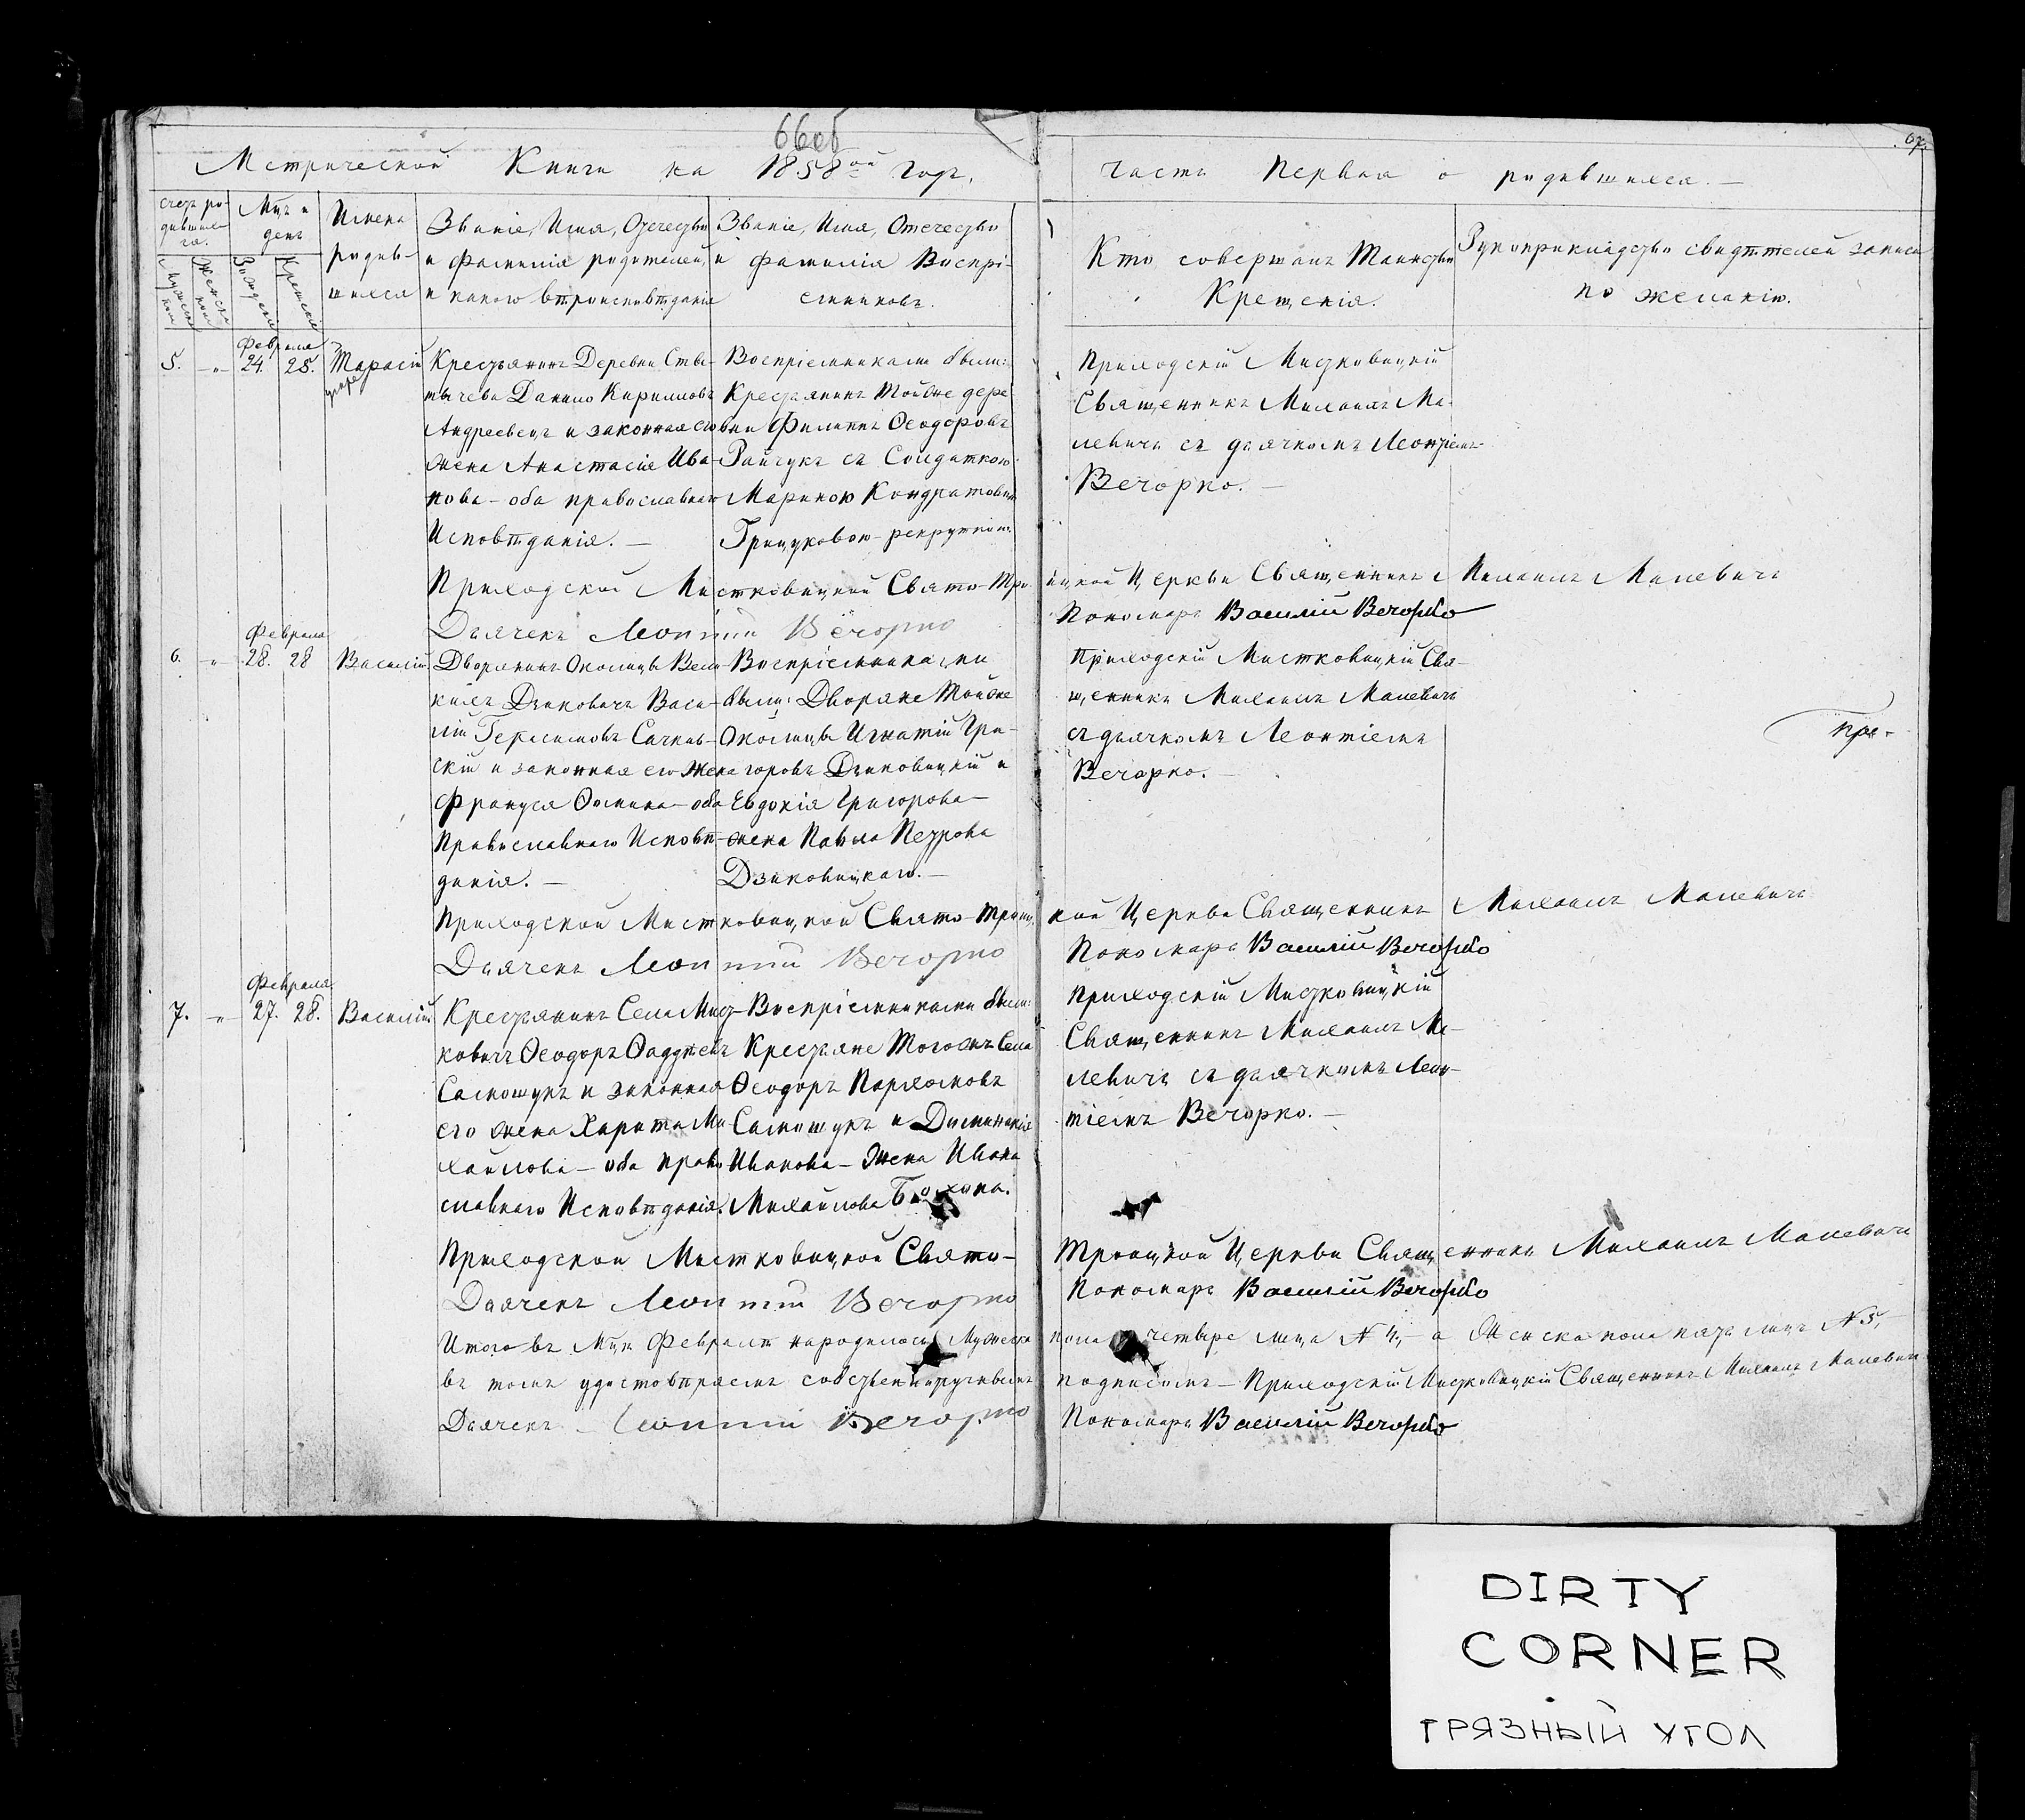 66об
67.
Метрической Книги на 1858ой Годъ,
часть первая о родившихся.—
Счетъ ро-
дившых-
ся.
Мужеска
пола
Женска
пола
Мцъ и
день
Рожденія
Крещенія
Имена
родив-
шихся
Званіе, Имя, Отечество
и Фамилія родителей,
и какого вѣроисповѣданія
Званіе, Имя, Отечество
и Фамилія Воспрі-
емниковъ.
Кто совершалъ Таинство
Крещенія.
Рукоприкладство свидѣтелей записи
по желанію.
Февраля
5. -„- 24. 25. Тарасій
умре
Крестьянинъ Деревни Ства-
тычева Данило Кирилловъ
Андреевецъ и законная его
жена Анастасія Ива-
нова - оба православнаго
Исповѣданія. —
Воспріемниками были:
Крестьянинъ Тойже дере
вни Филиппъ Ѳеодоровъ
Райчукъ съ Солдаткою
Мариною Кондратовою
Грицуковою - рекруткою.
Приходскій Мистковицкій
Священникъ Михаилъ Ма-
левичъ съ дьячкомъ Леонтіемъ
Вечорко. —
Приходской Мистковицкой Свято-Тро-
ицкой Церкви Священникъ Михаилъ Малевичъ
Дьячекъ Леонтій Вечорко
Пономарь Василій Вечорко
Февраля
6. -„- 28. 28 Василій.
Дворянинъ Околицы Вели-
кихъ Дзиковичъ Васи-
лій Герасимовъ Сачков-
скій и законная его жена
Франуся Ѳомина - оба
Православнаго Исповѣ-
данія. —
Воспріемниками
были: Дворяне Тойже
Околицы Игнатій Гри-
горовъ Дзиковицкій и
Евдокія Григорова -
жена Павла Петрова
Дзиковицкаго. —
Приходскій Мистковицкій Свя-
щенникъ Михаилъ Малевичъ
съ дьячкомъ Леонтіемъ
Вечорко. —
При-
Приходской Мистковицкой Свято-Троиц
кой Церкви Священникъ Михаилъ Малевичъ
Дьячекъ Леонтій Вечорко
Пономарь Василій Вечорко
Февраля
7. -„- 27. 28. Василій
Крестьянинъ Села Мист-
ковичъ Ѳеодоръ Ѳаддѣевъ
Самошукъ и законная
его жена Харита Ми
хайлова - оба право
славнаго Исповѣданія.
Воспріемниками были:
Крестьяне Тогожъ Села
Ѳеодоръ Пархомовъ
Самошукъ и Доминикія
Иванова - жена Ивана
Михайлова
Приходскій Мистковицкій
Священникъ Михаилъ Ма-
левичъ съ дьячкомъ Леон-
тіемъ Вечорко. —
Приходской Мистковицкой Свято-
Троицкой Церкви Священникъ Михаилъ Малевичъ
Дьячекъ Леонтій Вечорко
Пономарь Василій Вечорко
Итого въ Мцѣ Февралѣ народилось Мужеска
пола четыре лица N 4, - а Женска пола пять лицъ N 5,
въ томъ удостовѣряемъ собственноручнымъ
подписомъ - Приходскій Мистковицкій Священникъ Михаилъ Малевичъ
Дьячекъ - Леонтій Вечорко
Пономарь Василій Вечорко
DIRTY
CORNER
ГРЯЗНЫЙ УГОЛ